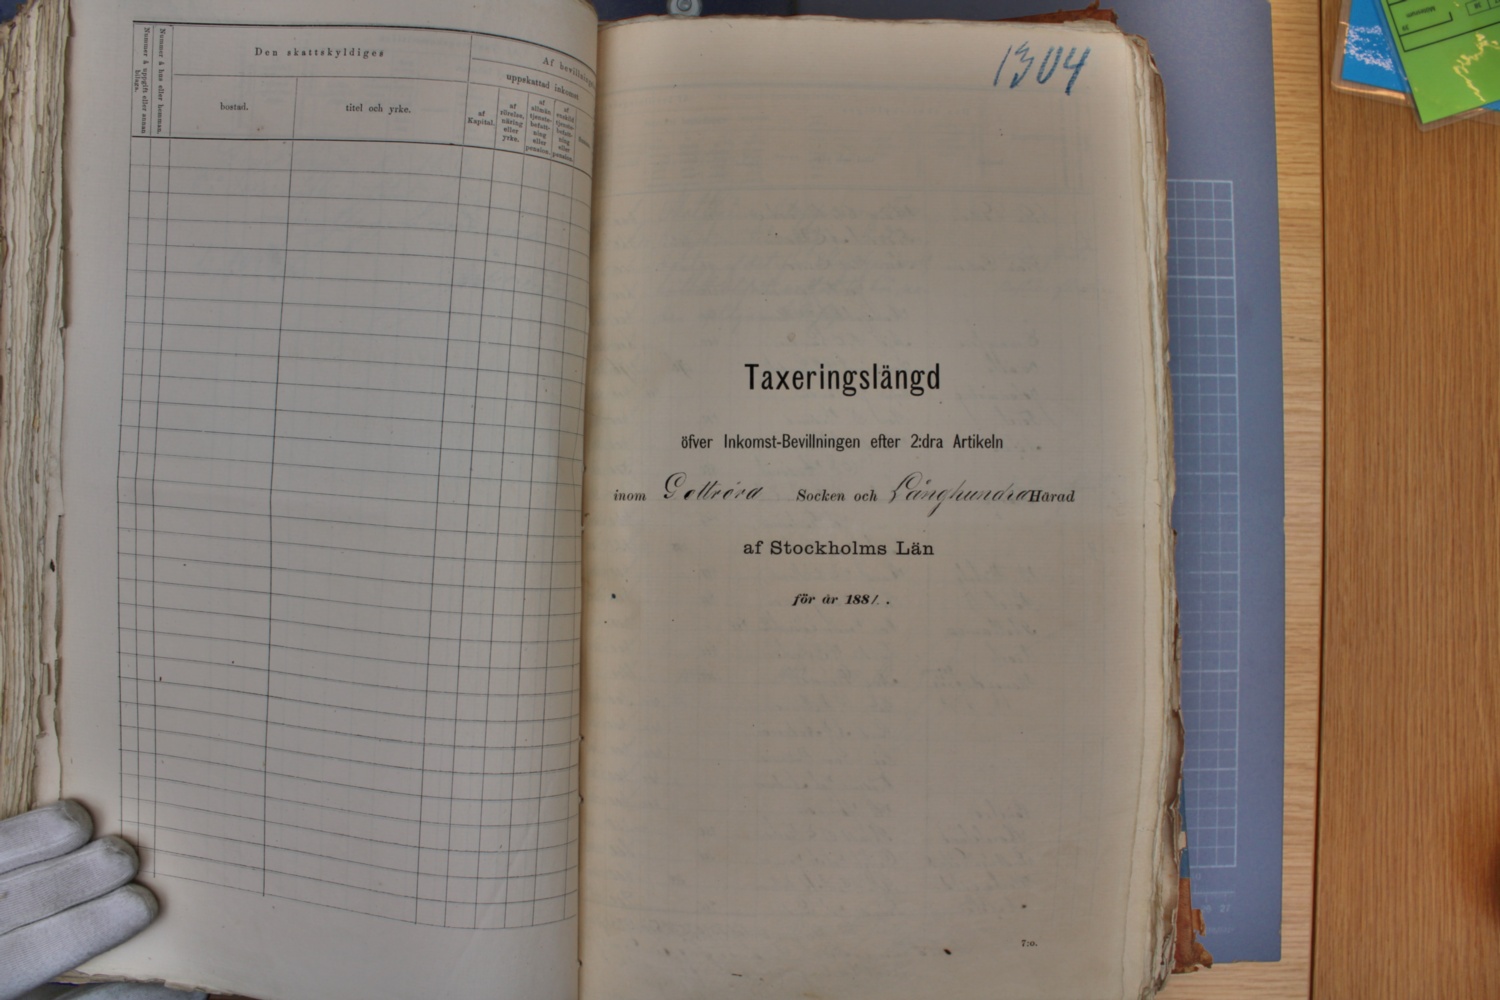 Nummer å uppgift eller annan bilaga.
Nummer å hus eller hemman.
Den skattskyldiges
bostad.
titel och yrke.
Af bevillning
uppskattad inkomst
af Kapital.
af rörelse, näring eller yrke.
af allmän tjenstebefattning eller pension.
af enskild tjenstebefattning eller pension.
1304
Taxeringslängd
öfver Inkomst-Bevillningen efter 2:dra Artikeln
inom Gottröra Socken och Långhundra Härad
af Stockholms Län
för år 1881.
7:o.